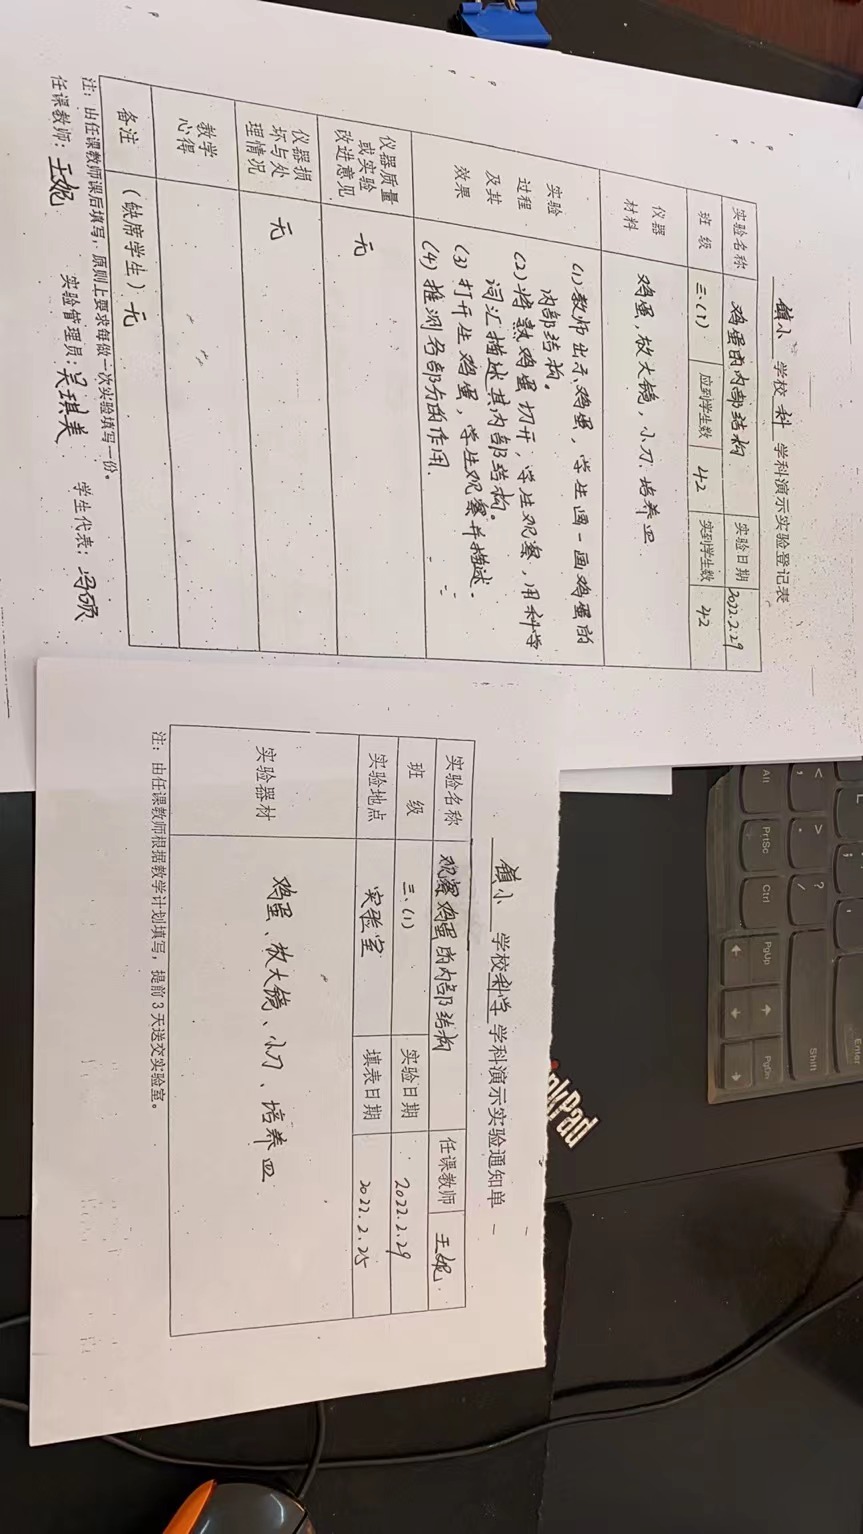 镇小 学校 科 学科演示实验登记表
实验名称 鸡蛋的内部结构 实验日期 2022.2.29
班 级 三.(1) 应到学生数 42 实到学生数 42
仪器
材料
鸡蛋，放大镜，小刀、培养皿
实验
过程
及其
效果
(1)教师出示鸡蛋，学生画一画鸡蛋的
内部结构。
(2)将熟鸡蛋切开，学生观察，用科学
词汇描述其内部结构。
(3)打开生鸡蛋，学生观察并描述.
(4)推测各部分的作用.
仪器质量
或实验
改进意见
无
仪器损
坏与处
理情况
无
教学
心得
备注 (缺席学生) 无
注：由任课教师课后填写，原则上要求每做一次实验填写一份。
任课教师：王妮 实验管理员：吴琪美 学生代表：冯硕
镇小 学校 科学 学科演示实验通知单
实验名称 观察鸡蛋的内部结构 任课教师 王妮
班 级 三.(1) 实验日期 2022.2.29
实验地点 实验室 填表日期 2022.2.25
实验器材 鸡蛋、放大镜、小刀、培养皿
注：由任课教师根据教学计划填写，提前3天送交实验室。
Alt
PrtSc
Ctrl
PgUp
PgDn
Shift
Enter
<
,
>
.
?
/
;
L
Pad